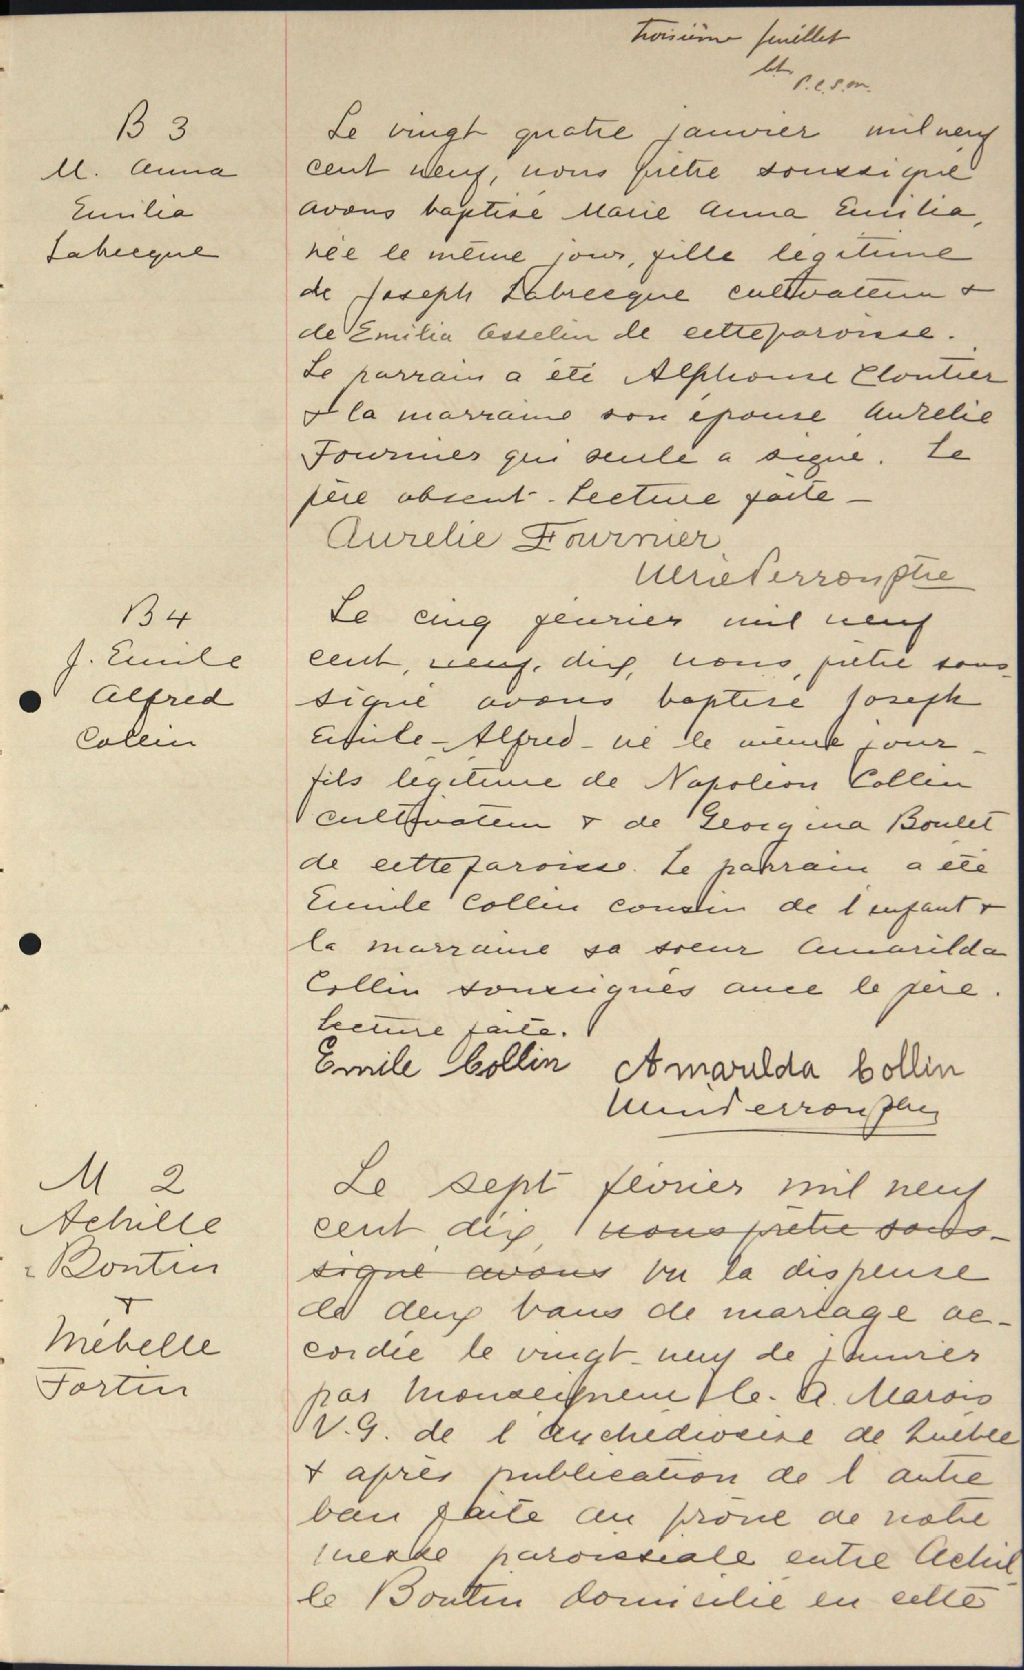 troisième feuillet
P.C.S.M.
B 3
M. Anna
Emilia
Labrecque
Le vingt quatre janvier mil neuf
cent neuf, nous prêtre soussigné
avons baptisé Marie Anna Emilia,
née le même jour, fille légitime
de Joseph Labrecque cultivateur &
de Emilia Asselin de cette paroisse.
Le parrain a été Alphonse Cloutier
& la marraine son épouse Aurélie
Fournier qui seule a signé. Le
père absent. Lecture faite —
Aurelie Fournier
Perron ptre
B 4
J. Emile
Alfred
Collin
Le cinq février mil neuf
cent, neuf, dix, nous, prêtre sous-
signé avons baptisé Joseph
Emile - Alfred - né le même jour -
fils légitime de Napoléon Collin
cultivateur & de Georgina Boulet
de cette paroisse. Le parrain a été
Emile Collin cousin de l'enfant &
la marraine sa soeur Amarilda
Collin soussignés avec le père.
Lecture faite.
Emile Collin Amarulda Collin
Perron ptre
M 2
Achille
Boutin
&
Mébelle
Fortin
Le sept février mil neuf
cent dix, nous prêtre sous-
signé avons vu la dispense
de deux bans de mariage ac-
cordée le vingt-neuf de janvier
par Monseigneur C. A. Marois
V.G. de l'archédiocèse de Québec
& après publication de l'autre
ban faite au prône de notre
messe paroissiale entre Achil-
le Boutin domicilié en cette